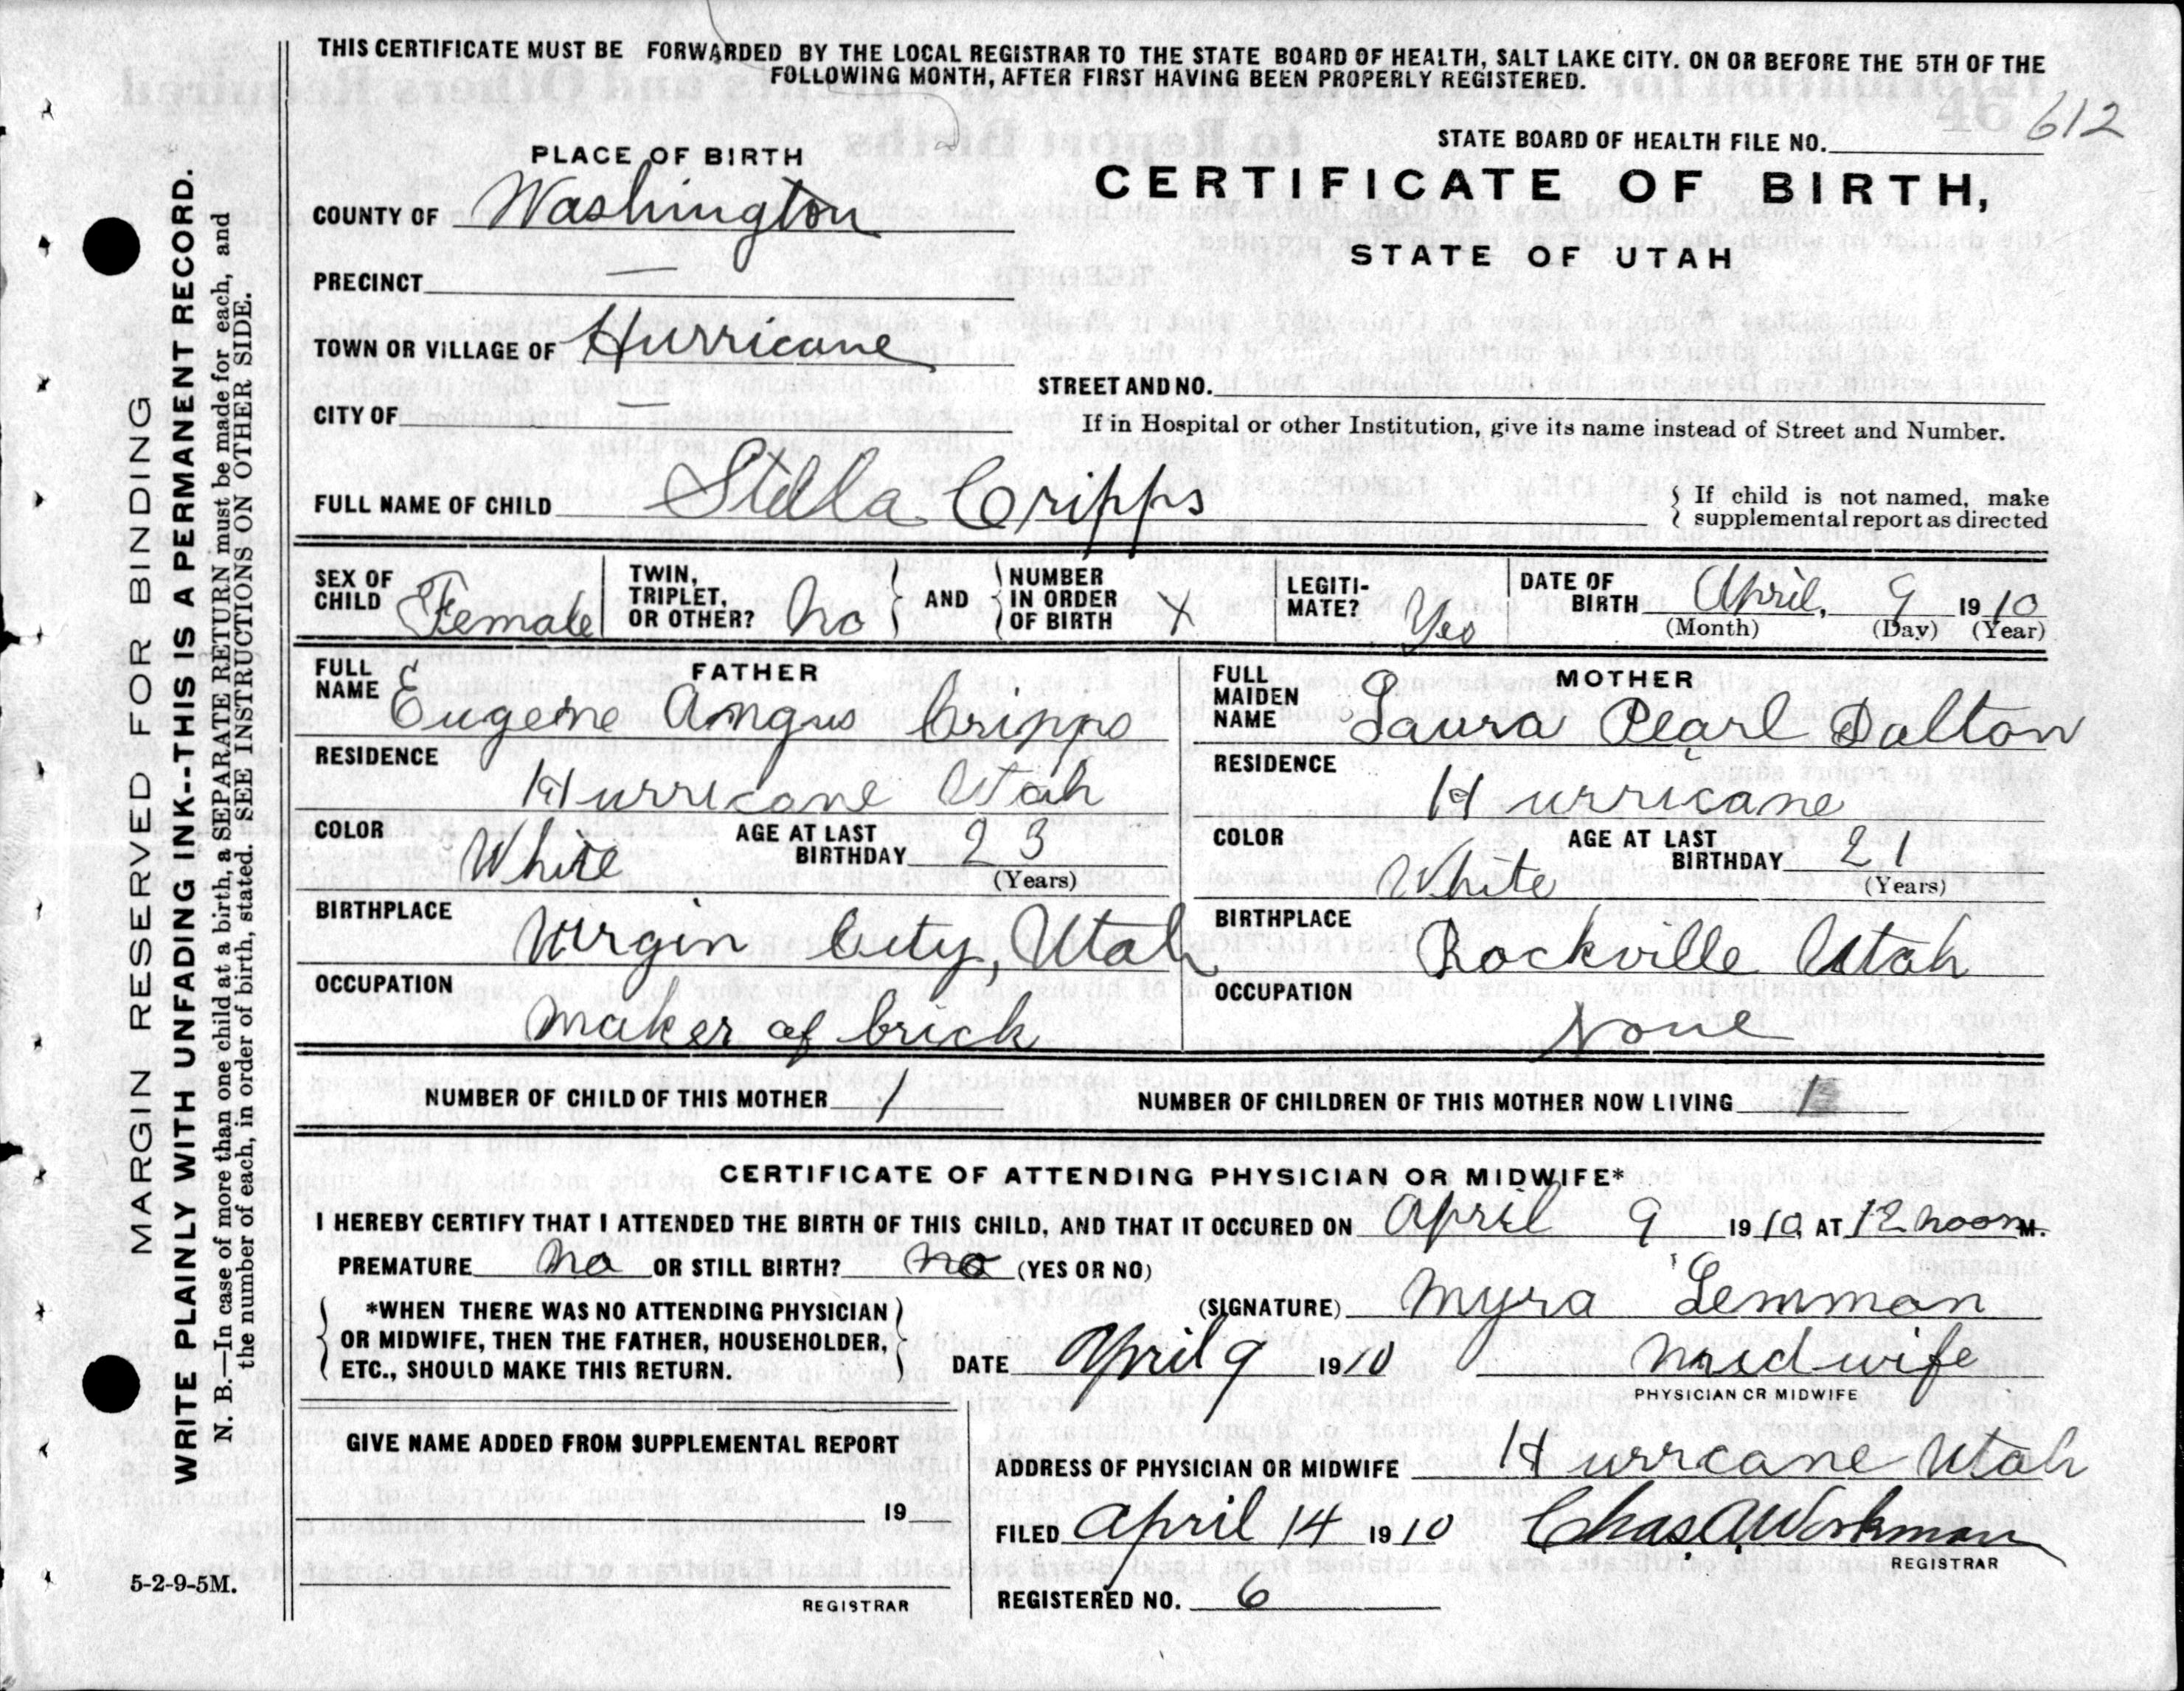 THIS CERTIFICATE MUST BE FORWARDED BY THE LOCAL REGISTRAR TO THE STATE BOARD OF HEALTH, SALT LAKE CITY. ON OR BEFORE THE 5TH OF THE
FOLLOWING MONTH, AFTER FIRST HAVING BEEN PROPERLY REGISTERED.
612
STATE BOARD OF HEALTH FILE NO.
PLACE OF BIRTH
CERTIFICATE OF BIRTH,
STATE OF UTAH
COUNTY OF Washington
PRECINCT —
TOWN OR VILLAGE OF Hurricane
STREET AND NO.
CITY OF —
If in Hospital or other Institution, give its name instead of Street and Number.
FULL NAME OF CHILD Stella Cripps
{ If child is not named, make
supplemental report as directed
SEX OF CHILD Female
TWIN, TRIPLET, OR OTHER? No } AND { NUMBER IN ORDER OF BIRTH X
LEGITI-MATE? Yes
DATE OF BIRTH April, 9 1910
(Month) (Day) (Year)
FATHER
FULL NAME Eugene Angus Cripps
RESIDENCE
Hurricane Utah
COLOR White AGE AT LAST BIRTHDAY 23
(Years)
BIRTHPLACE
Virgin City, Utah
OCCUPATION
Maker of brick
MOTHER
FULL MAIDEN NAME Laura Pearl Dalton
RESIDENCE
Hurricane
COLOR White AGE AT LAST BIRTHDAY 21
(Years)
BIRTHPLACE
Rockville Utah
OCCUPATION
None
NUMBER OF CHILD OF THIS MOTHER 1 NUMBER OF CHILDREN OF THIS MOTHER NOW LIVING 1
CERTIFICATE OF ATTENDING PHYSICIAN OR MIDWIFE*
I HEREBY CERTIFY THAT I ATTENDED THE BIRTH OF THIS CHILD, AND THAT IT OCCURED ON April 9 1910, AT 12 noon M.
PREMATURE no OR STILL BIRTH? no (YES OR NO)
{ *WHEN THERE WAS NO ATTENDING PHYSICIAN
OR MIDWIFE, THEN THE FATHER, HOUSEHOLDER,
ETC., SHOULD MAKE THIS RETURN. }
(SIGNATURE) Myra Lemmon
DATE April 9 1910 Midwife
PHYSICIAN OR MIDWIFE
GIVE NAME ADDED FROM SUPPLEMENTAL REPORT
19
REGISTRAR
ADDRESS OF PHYSICIAN OR MIDWIFE Hurricane Utah
FILED April 14 1910 Chas. A. Workman
REGISTRAR
REGISTERED NO. 6
MARGIN RESERVED FOR BINDING
WRITE PLAINLY WITH UNFADING INK--THIS IS A PERMANENT RECORD.
N. B.—In case of more than one child at a birth, a SEPARATE RETURN must be made for each, and
the number of each, in order of birth, stated. SEE INSTRUCTIONS ON OTHER SIDE.
5-2-9-5M.